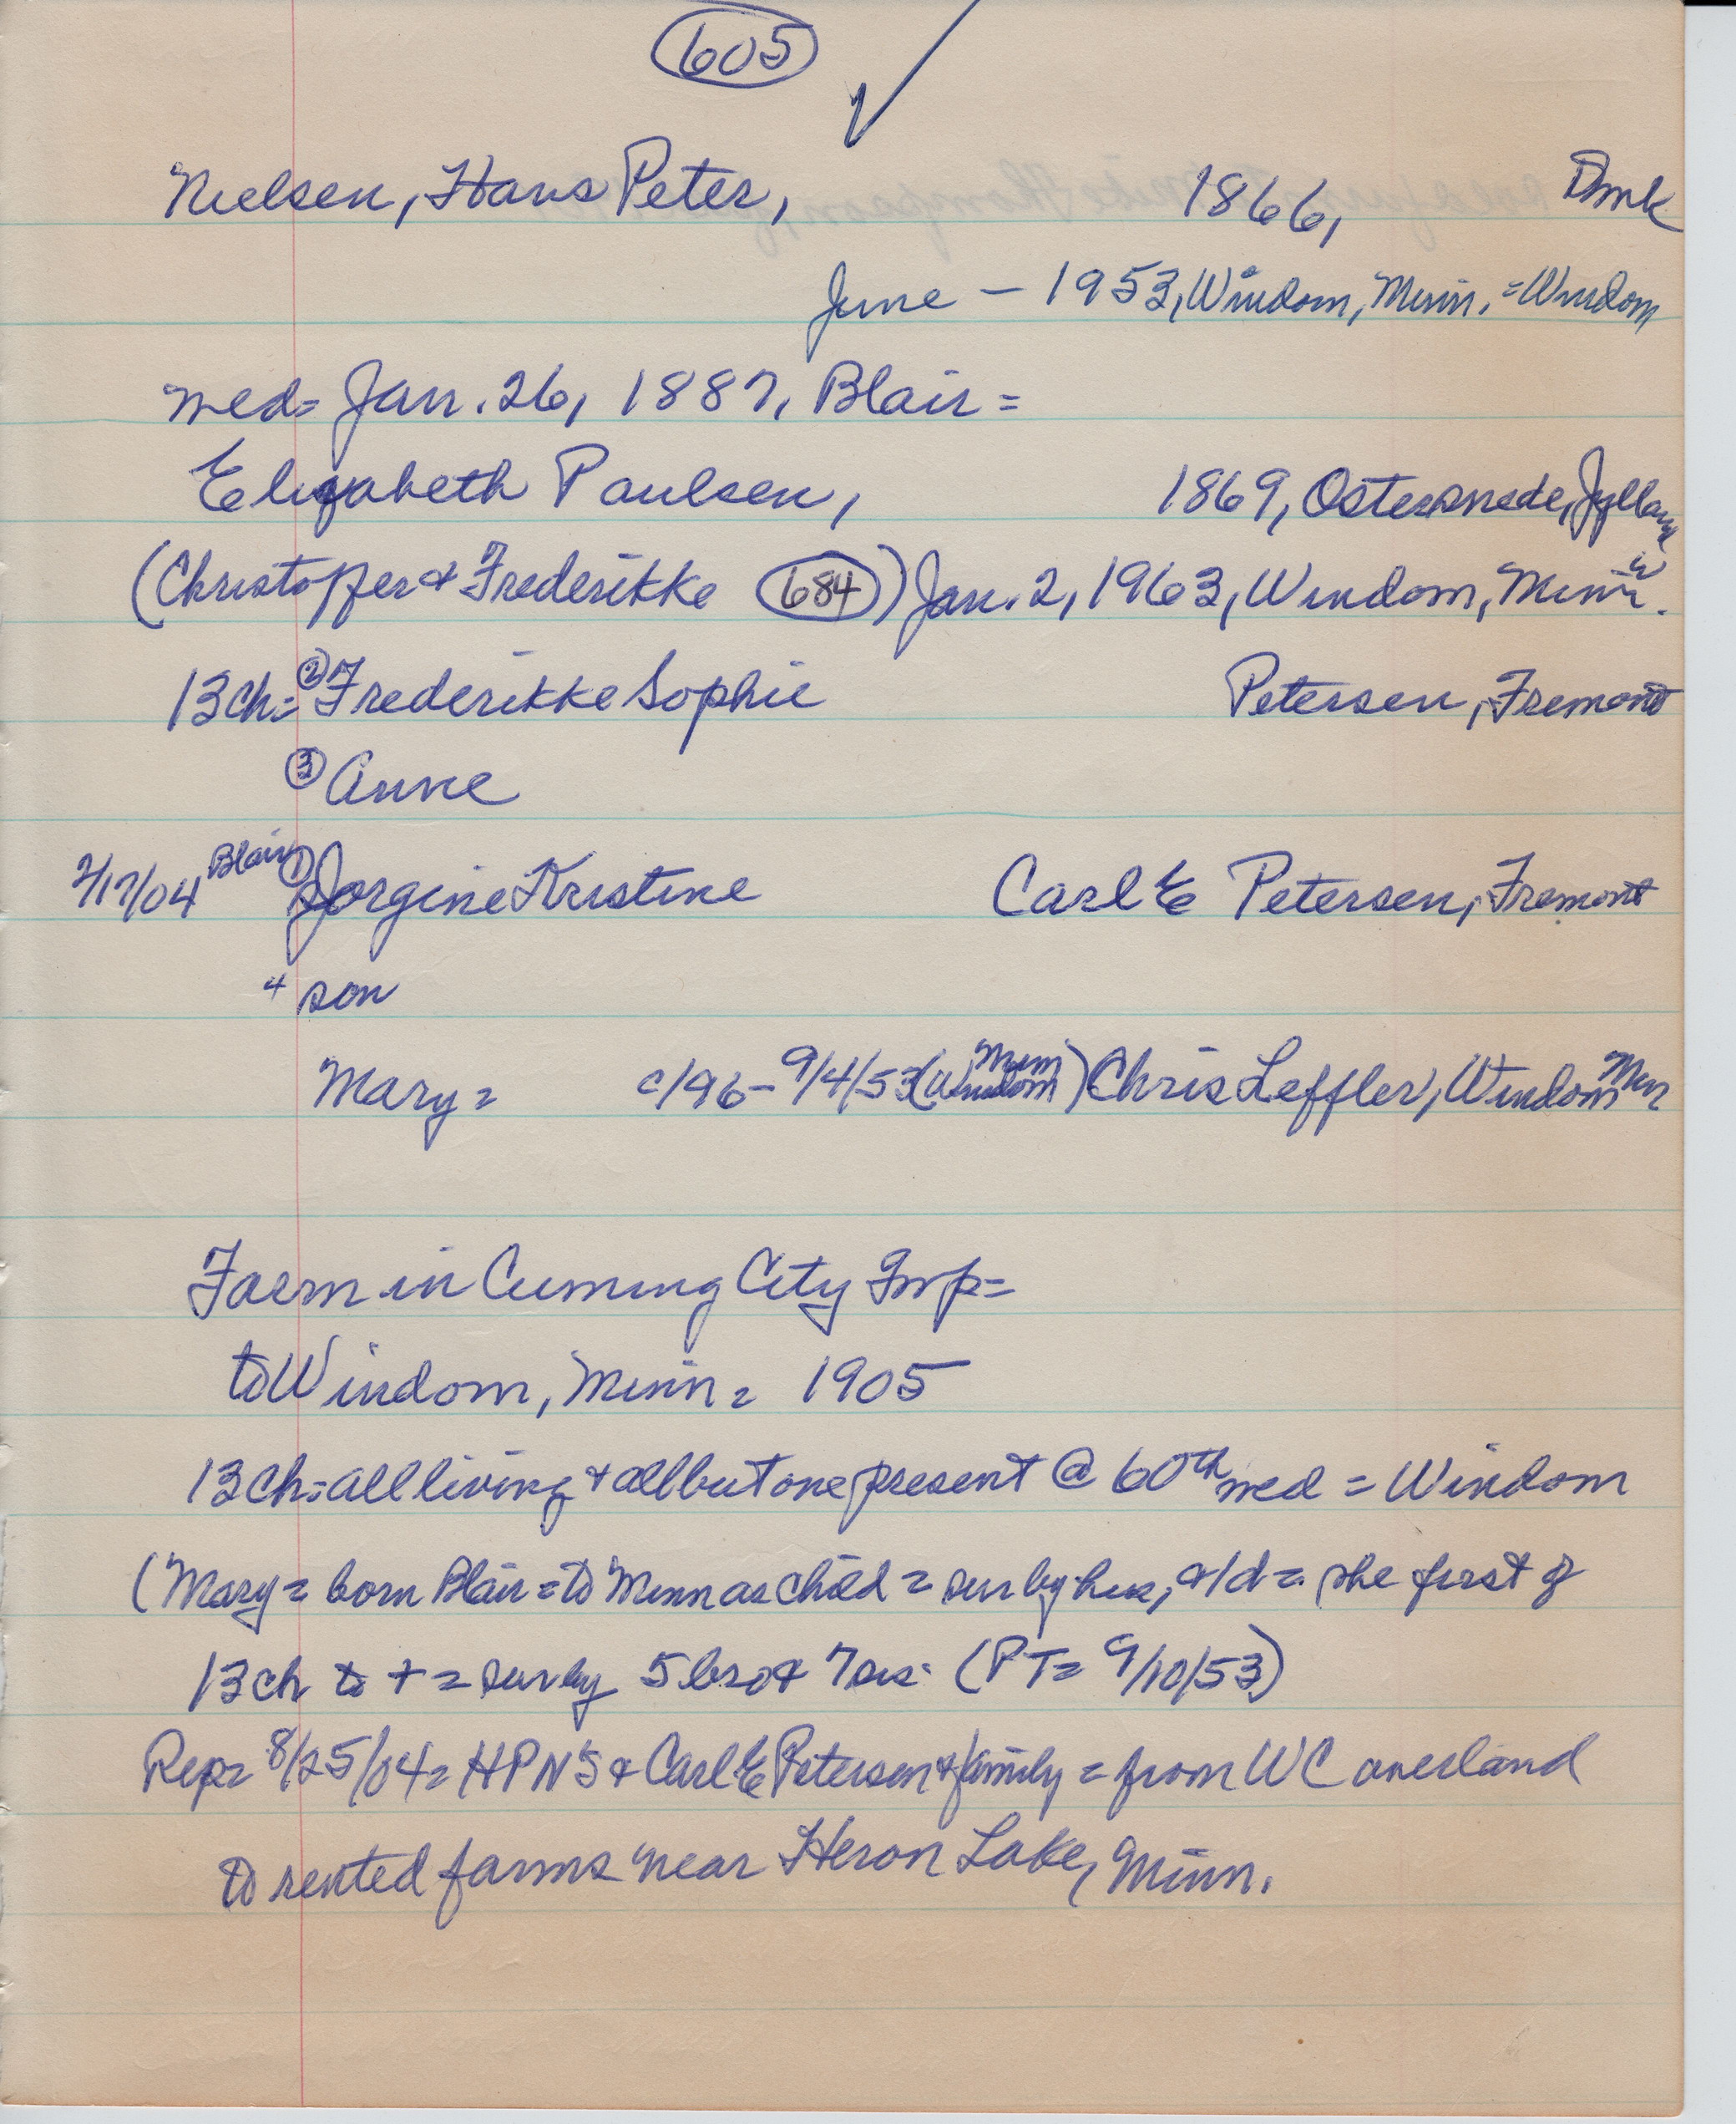 605 ✓
Nielsen, Hans Peter, 1866, Dmk
June – 1953, Windom, Minn. = Windom
med = Jan. 26, 1887, Blair =
Elizabeth Paulsen, 1869, Ostersnede, Jylland
(Christoffer & Frederikke 684) Jan. 2, 1963, Windom, Minn. W
13 ch = ② Frederikke Sophie Petersen, Fremont
③ Anne
2/17/04 Blair ① Jorgine Kristine Carl E Petersen, Fremont
4 son
Mary = c/96 – 9/4/53 (Windom Minn) Chris Leffler, Windom Minn
Farm in Cuming City Twp =
to Windom, Minn = 1905
13 ch = all living & all but one present @ 60th med = Windom
(Mary = born Blair = to Minn as child = sur by hus, a/d = she first of
13 ch to + = sur by 5 bro & 7 sis. (PT = 9/10/53)
Rep = 8/25/04 = HPN's & Carl E Petersen & family = from WC overland
to rented farms near Heron Lake, Minn.